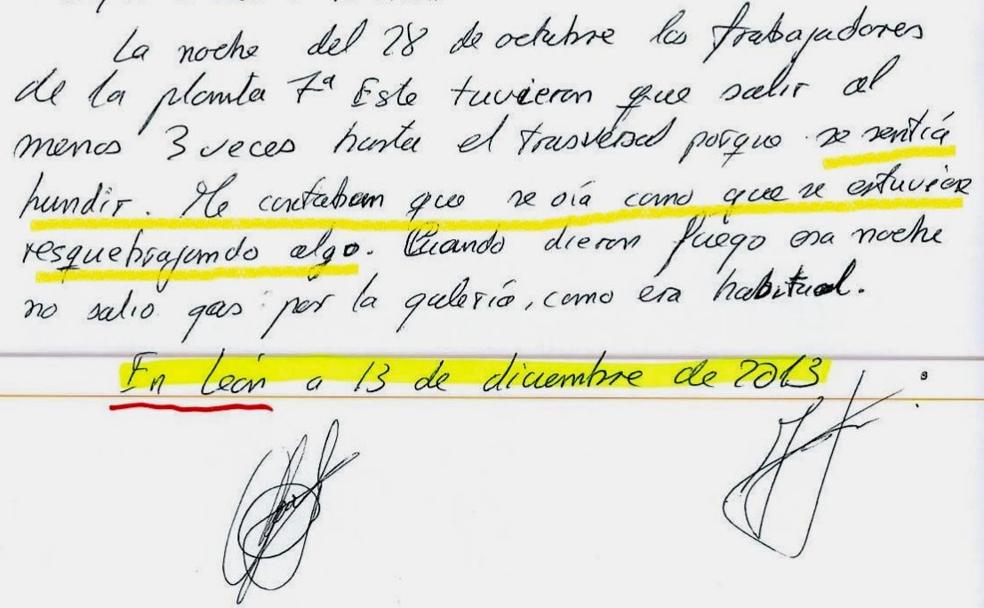 La noche del 28 de octubre los trabajadores
de la planta 7ª Este tuvieron que salir al
menos 3 veces hasta el trasversal porque se sentiá
hundir. Me contaban que se oía como que se estuviese
resquebrajando algo. Cuando dieron fuego esa noche
no salio gas por la galería, como era habitual.
En León a 13 de diciembre de 2013